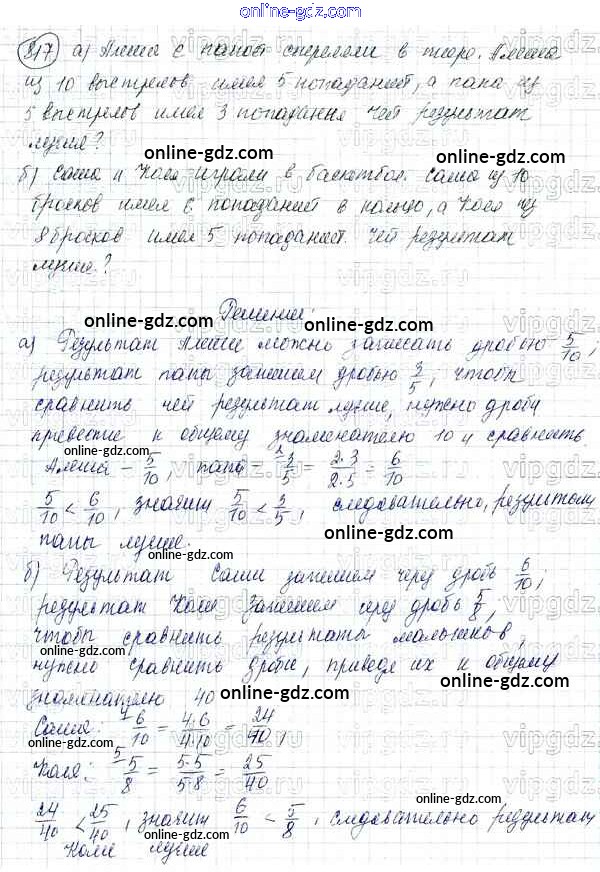 817 а) Алеша с папой стреляли в тире. Алеша
из 10 выстрелов имел 5 попаданий, а папа из
5 выстрелов имел 3 попадания. Чей результат
лучше?
online-gdz.com
online-gdz.com
б) Саша и Коля играли в баскетбол. Саша из 10
бросков имел 6 попаданий в кольцо, а Коля из
8 бросков имел 5 попаданий. Чей результат
лучше?
online-gdz.com
Решение:
online-gdz.com
online-gdz.com
а) Результат Алеши можно записать дробью 5/10;
результат папы запишем дробью 3/5, чтобы
сравнить чей результат лучше, нужно дроби
online-gdz.com
привести к общему знаменателю 10 и сравнить
Алеша - 5/10; папа - 3/5 = 2·3/2·5 = 6/10
5/10 < 6/10, значит 5/10 < 3/5, следовательно, результат
online-gdz.com
папы лучше.
online-gdz.com
б) Результат Саши запишем через дробь 6/10;
online-gdz.com
результат Коли запишем через дробь 5/8,
чтобы сравнить результаты мальчиков,
нужно сравнить дроби, приведя их к общему
online-gdz.com
знаменателю 40
Саша: 6/10 = 4·6/4·10 = 24/40,
online-gdz.com
online-gdz.com
Коля: 5/8 = 5·5/5·8 = 25/40
online-gdz.com
24/40 < 25/40, значит 6/10 < 5/8, следовательно результат
online-gdz.com
Коли лучше
online-gdz.com